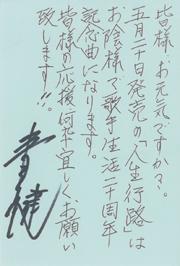 皆様、お元気ですか?
五月二十日発売の「人生行路」は
お陰様で歌手生活二十周年
記念曲になります。
皆様の応援何卒宜しくお願い
致します!!